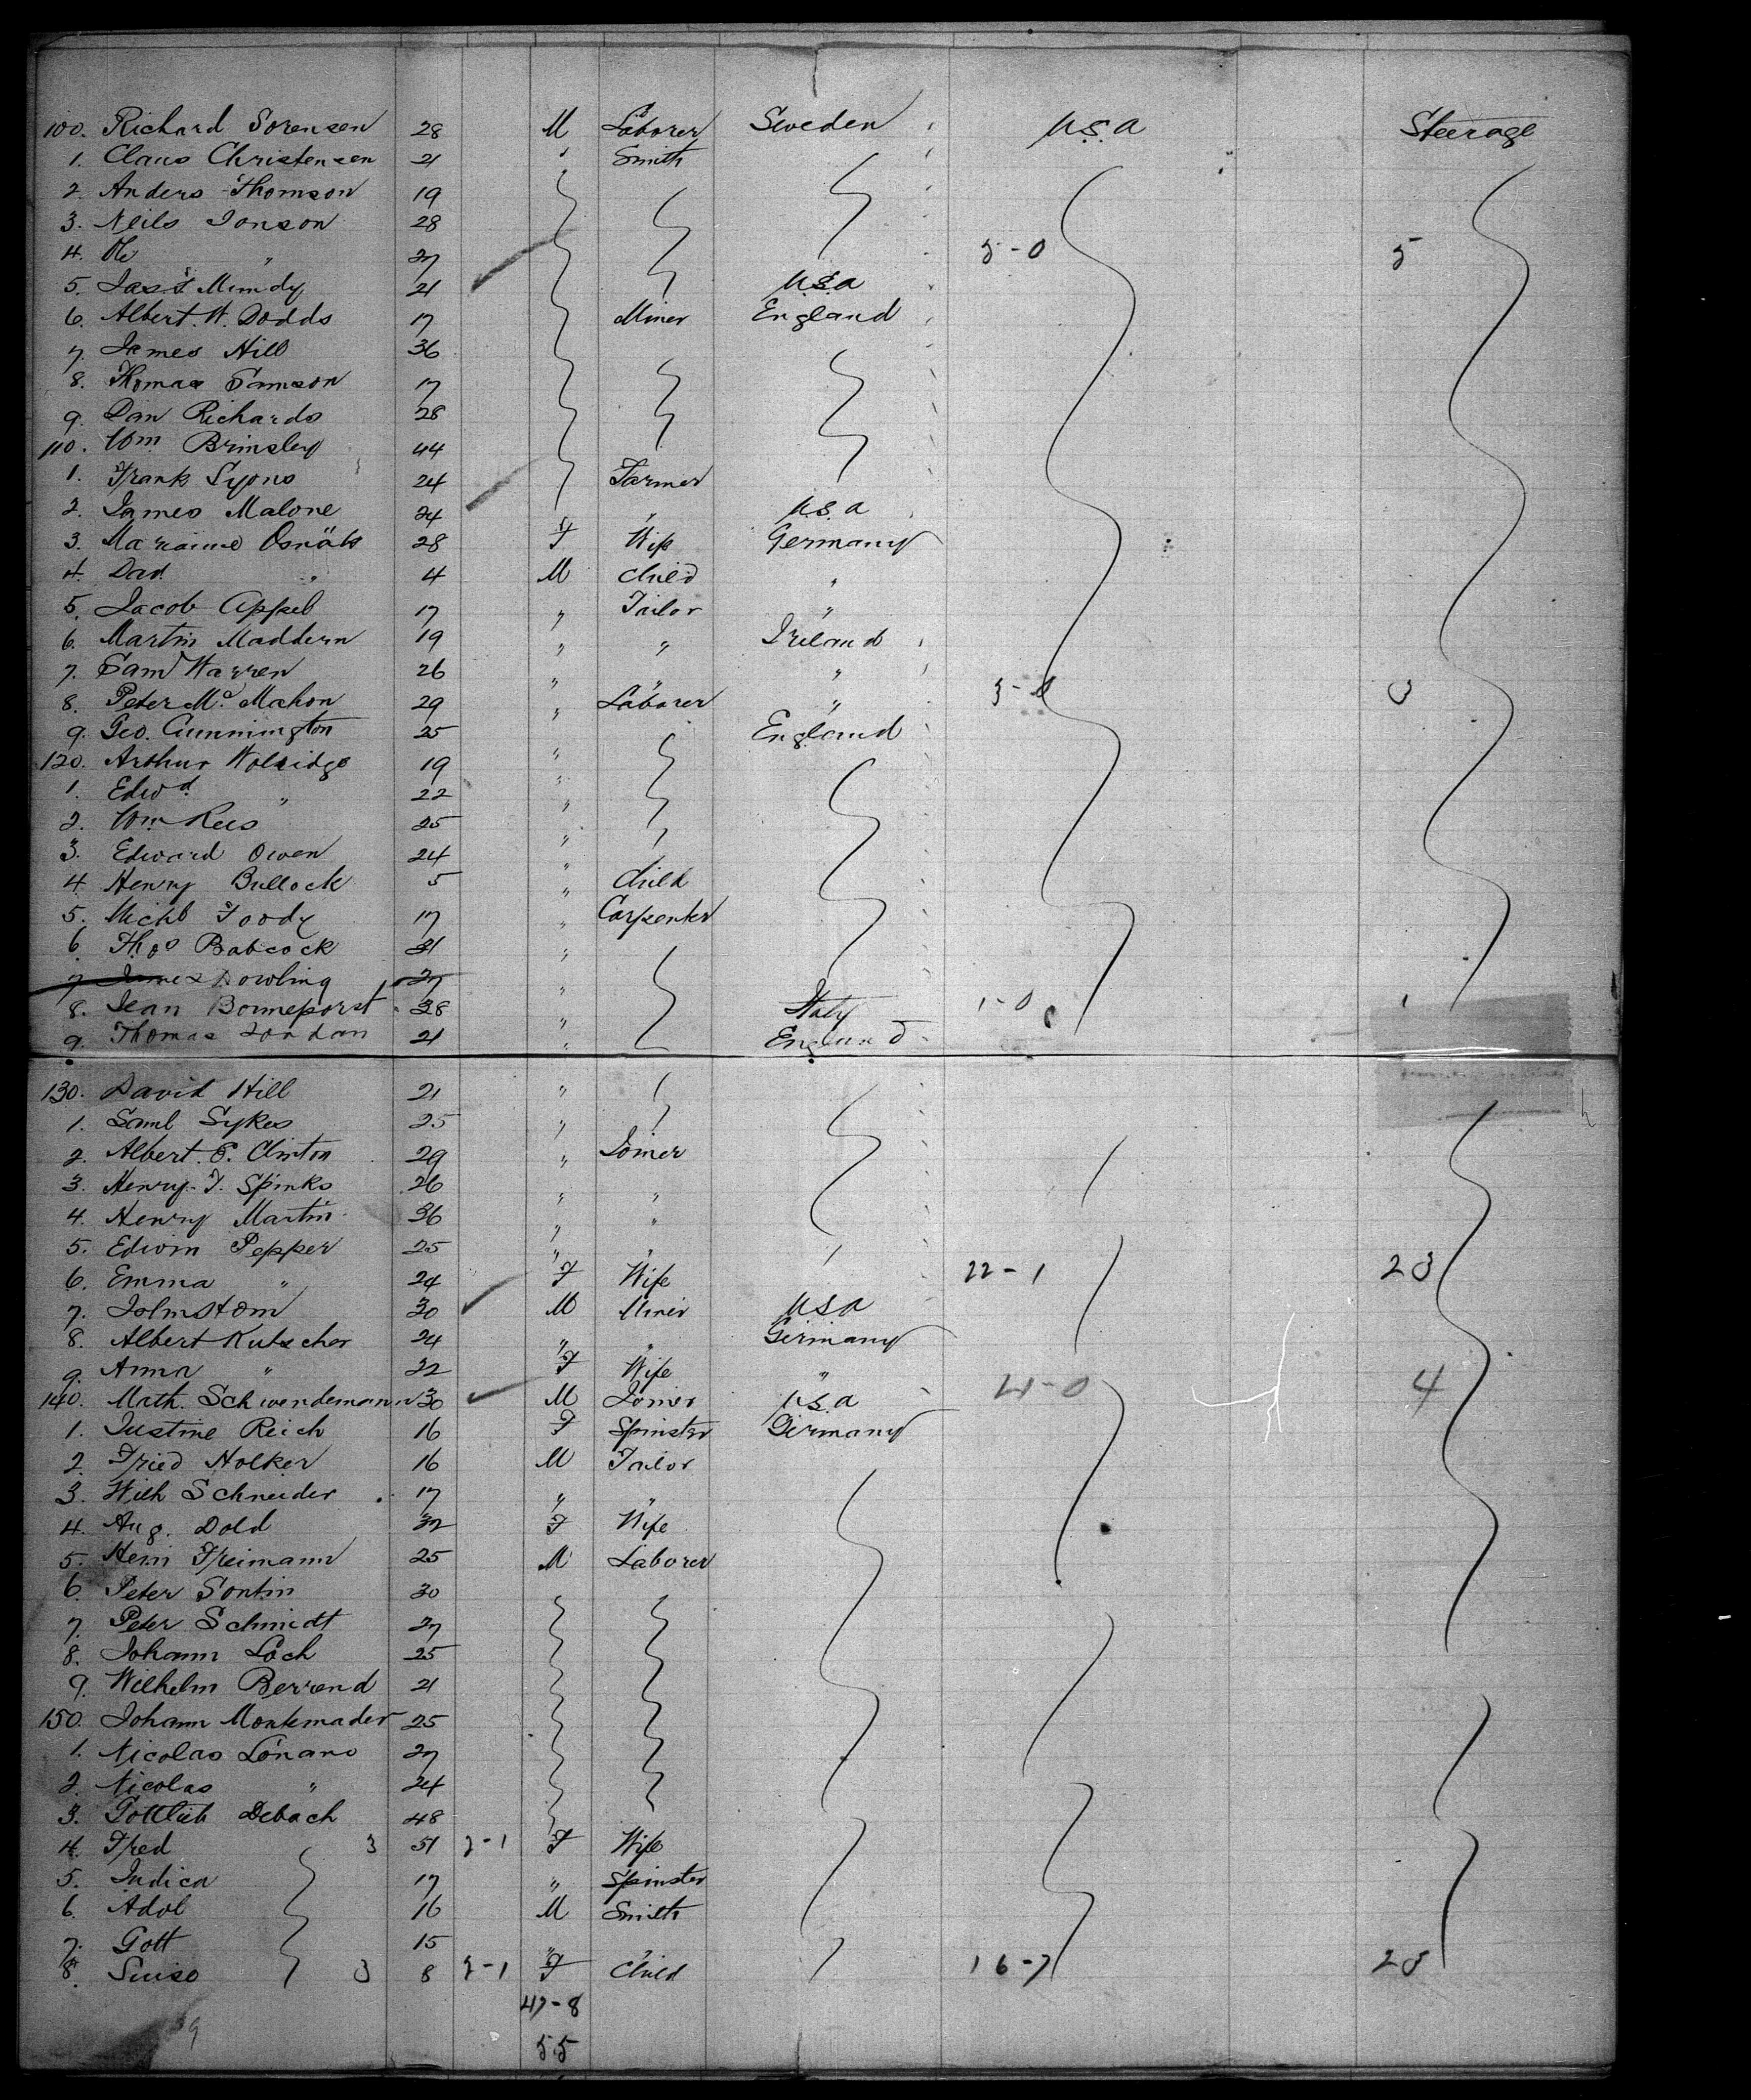 100. Richard Sorensen 28 M Laborer Sweden U.S.A Steerage
1. Claus Christensen 21 " Smith
2. Anders Thomson 19
3. Neils Jonson 28
4. Ole " 27 5-0 5
5. Jas Mundy 21 U.S.A
6. Albert. W. Dodds 17 Miner England
7. James Hill 36
8. Thomas Samson 17
9. Dan Richards 28
110. Wm Brinsley 44
1. Frank Lyons 24 Farmer
2. James Malone 24 " U.S.A
3. 28 F Wife Germany
4. Dad " 4 M Child "
5. Jacob Appel 17 " Tailor "
6. Martin Maddern 19 " " Ireland
7. Saml Warren 26 " " "
8. Peter Mc Mahon 29 " Laborer " 3-0 3
9. Geo. Cunnington 25 " England
120. Arthur Wolridge 19 "
1. Edwd " 22 "
2. Wm Rees 25 "
3. Edward Owen 24 "
4. Henry Bullock 5 " Child
5. Michl Foody 17 " Carpenter
6. Thos Babcock 31 "
7. James Dowling 27 "
8. Jean 38 " Italy 1-0 1
9. Thomas Jordan 21 " England
130. David Hill 21 "
1. Saml Sykes 25 "
2. Albert. E. Clinton 29 " Joiner
3. Henry. J. Spinks 26 " "
4. Henry Martin 36 " "
5. Edwin Pepper 25 " "
6. Emma " 24 F Wife 22-1 23
7. 30 M Miner U.S.A
8. Albert Kutscher 24 " " Germany
9. Anna " 22 F Wife "
140. Math. Schwendemann 30 M Joiner U.S.A 4-0 4
1. Justine Reich 16 F Spinster Germany
2. Fried Holker 16 M Tailor
3. Wilh Schneider 17 " "
4. Aug. Dold 32 F Wife
5. Heni Freimann 25 M Laborer
6. Peter Sontin 30
7. Peter Schmidt 27
8. Johann Loch 25
9. Wilhelm Berrend 21
150. Johann Montemader 25
1. Nicolas Lonano 27
2. Nicolas " 24
3. Gottlieb Debach 48
4. Fred 3 51 3-1 F Wife
5. Indica 17 " Spinster
6. Adol 16 M Smith
7. Gott 15 " "
8. Luise 3 8 3-1 F Child 16-7 23
47-8
55